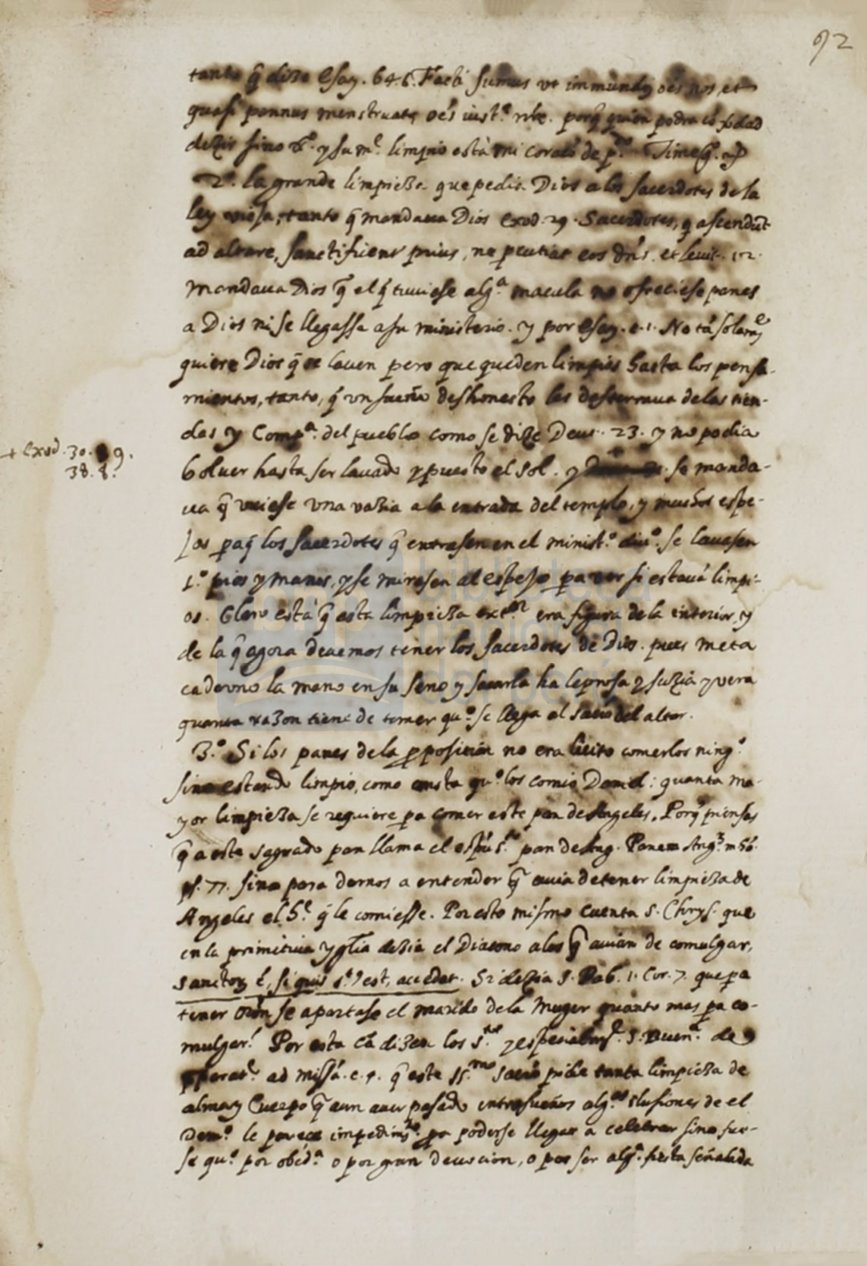 92
tanto q̃ dize Esay. 64. 6. Facti sumus vt inmundꝯ oẽs nos, et
quasi pannus menstruatę oẽs iustᵃ. nrẽ. porq̃ quien podra cõ ṽdad
dezir sino xᵒ. y su mᵉ. limpio està mi coraçõ de pᵈᵒ.
2ᵒ. la grande limpieza que pedia Dios a los sacerdotes de la
ley vieja, tanto q̃ mandaua Dios exod. 29. Sacerdotes, q̃ ascendũt
ad altare, sanctificent prius, ne pcutiat eos dñs. et leuit. 12.
Mandaua Dios q̃ el q̃ tuuiese algᵃ macula no ofreciese panes
a Dios ni se llegassa a su ministerio. y por Esay. c. 1. No tã solamᵉ
quiere Dios q̃ se lauen pero que queden limpios hasta los pensa-
mientos, tanto, q̃ vn sueño deshonesto los desterraua de las tien-
das y Compᵃ. del pueblo como se dize Deut. 23. y no podia
boluer hasta ser lauado y puesto el sol. y se manda-
+ Exod. 30. 19.
38. 8.
ua q̃ vuiese vna vazia a la entrada del templo, y muchos espe-
jos paq̃ los sacerdotes q̃ entrasen en el ministᵒ. diuᵒ. se lauasen
1ᵒ. pies y manos, y se mirasen al espejo pa ver si estauã limpi-
os. Claro està q̃ esta limpieza extᵒʳ era figura de la interior, y
de la q̃ agora deuemos tener los sacerdotes de Dios. pues meta
cada vno la mano en su seno y sacarla ha leprosa y suzia y vera
quanta razon tiene de temer quᵒ. se llega al sacrᵒ del altar.
3ᵒ. Si los panes de la pposicion no era licito comerlos ningᵒ
sino estando limpio, como consta quᵒ los comio Dauid: quanta ma-
yor limpieza se requiere pa comer este pan de Angeles. Porq̃ piensas
q̃ a este sagrado pan llama el espũ sᵗᵒ pan de Ang. Panem Angᵉˡ. m. hõ.
ps. 77. sino para dernos a entender q̃ auia de tener limpieza de
Angeles el hᵉ. q̃ le comiesse. Por esto mismo cuenta S. Chrys. que
en la primitiua yglĩa dezia el Diacono a los q̃ auian de comulgar,
sanctoꝝ ẽ, si quis sᵗ. est, accedat. Si dezia S. Pab. 1. Cor. 7. que pa
tener orõn se apartase el marido de la Muger quanto mas pa co-
mulgar! Por esta cã dizen los sᵗᵒˢ y espeçialmᵉ. S. Buenᵃ. de
pparatᵉ. ad missã. c. 9. q̃ este ssᵐᵒ sacrᵒ pide tanta limpieza de
alma y Cuerpo q̃ aun auer pasado entre sueños algᵃˢ ilusiones de el
Demᵒ. le parece impedimᵗᵒ. pa poderse llegar a celebrar sino fue-
se quᵒ. por obidᵃ. o por gran deuocion, o por ser algᵃ. fiesta señalada